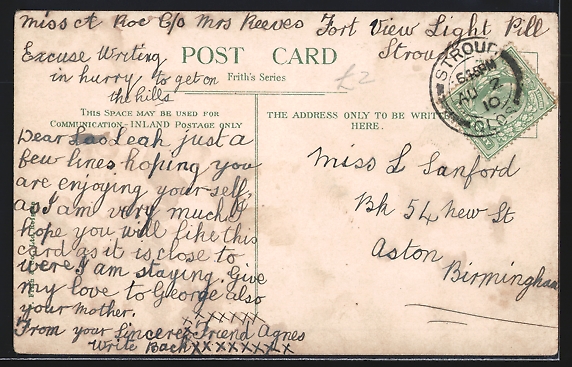 Miss A Roe C/o Mrs Reeves Fort View Light Pill
Stroud
Excuse Writing
in hurry to get on
the hills
POST CARD
Frith's Series
£2
THIS SPACE MAY BE USED FOR
COMMUNICATION - INLAND POSTAGE ONLY
Dear Leah just a
few lines hoping you
are enjoying your self,
as I am very much
hope you will like this
card as it is close to
were I am staying. Give
my love to George also
your Mother.
xxxxxxx
From your Sincere Friend Agnes
Write Back xxxxxxxx
THE ADDRESS ONLY TO BE WRIT
HERE.
STROUD
6.30PM
AU 2
10
GLOS
Miss L Sanford
Bk 54 New St
Aston
Birmingham